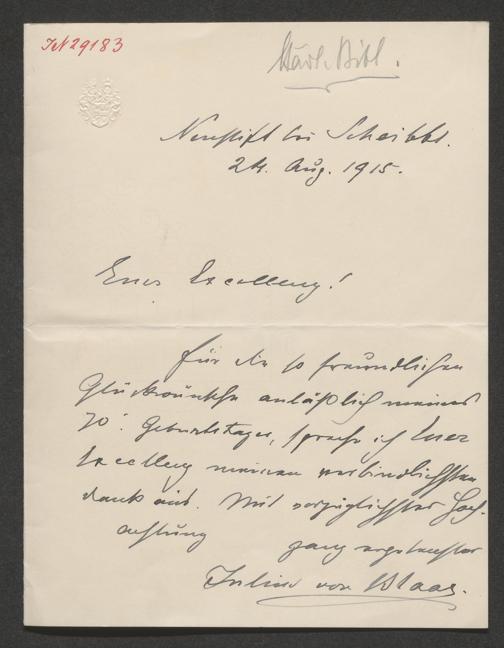 IN 29183
Städt. Bibl.
Neustift bei Scheibbs.
24. Aug. 1915.
Euer Excellenz!
Für die so freundlichen
Glückwünsche anläßlich meines
70. Geburtstages, spreche ich Euer
Excellenz meinen verbindlichsten
Dank aus. Mit vorzüglichster Hoch-
achtung ganz ergebenster
Julius von Blaas.